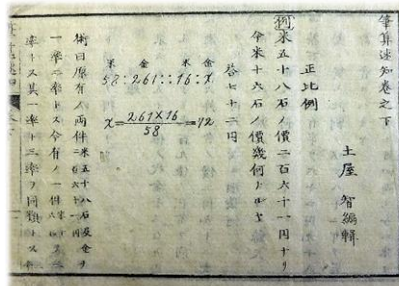 筆算速知巻之下
土屋 智編輯
正比例
例 米五十八石ノ價二百六十一円ナリ
今米十六石ノ價幾何ナルヤ
答七十二円
米 金 米 金
58:261::16:x
x=261×16/58=72
術曰原有ノ両件米五十八石及金
二百六十一円ヲ
一率二率トス今有ノ一件
率トス其一率ト三率ヲ同類トス